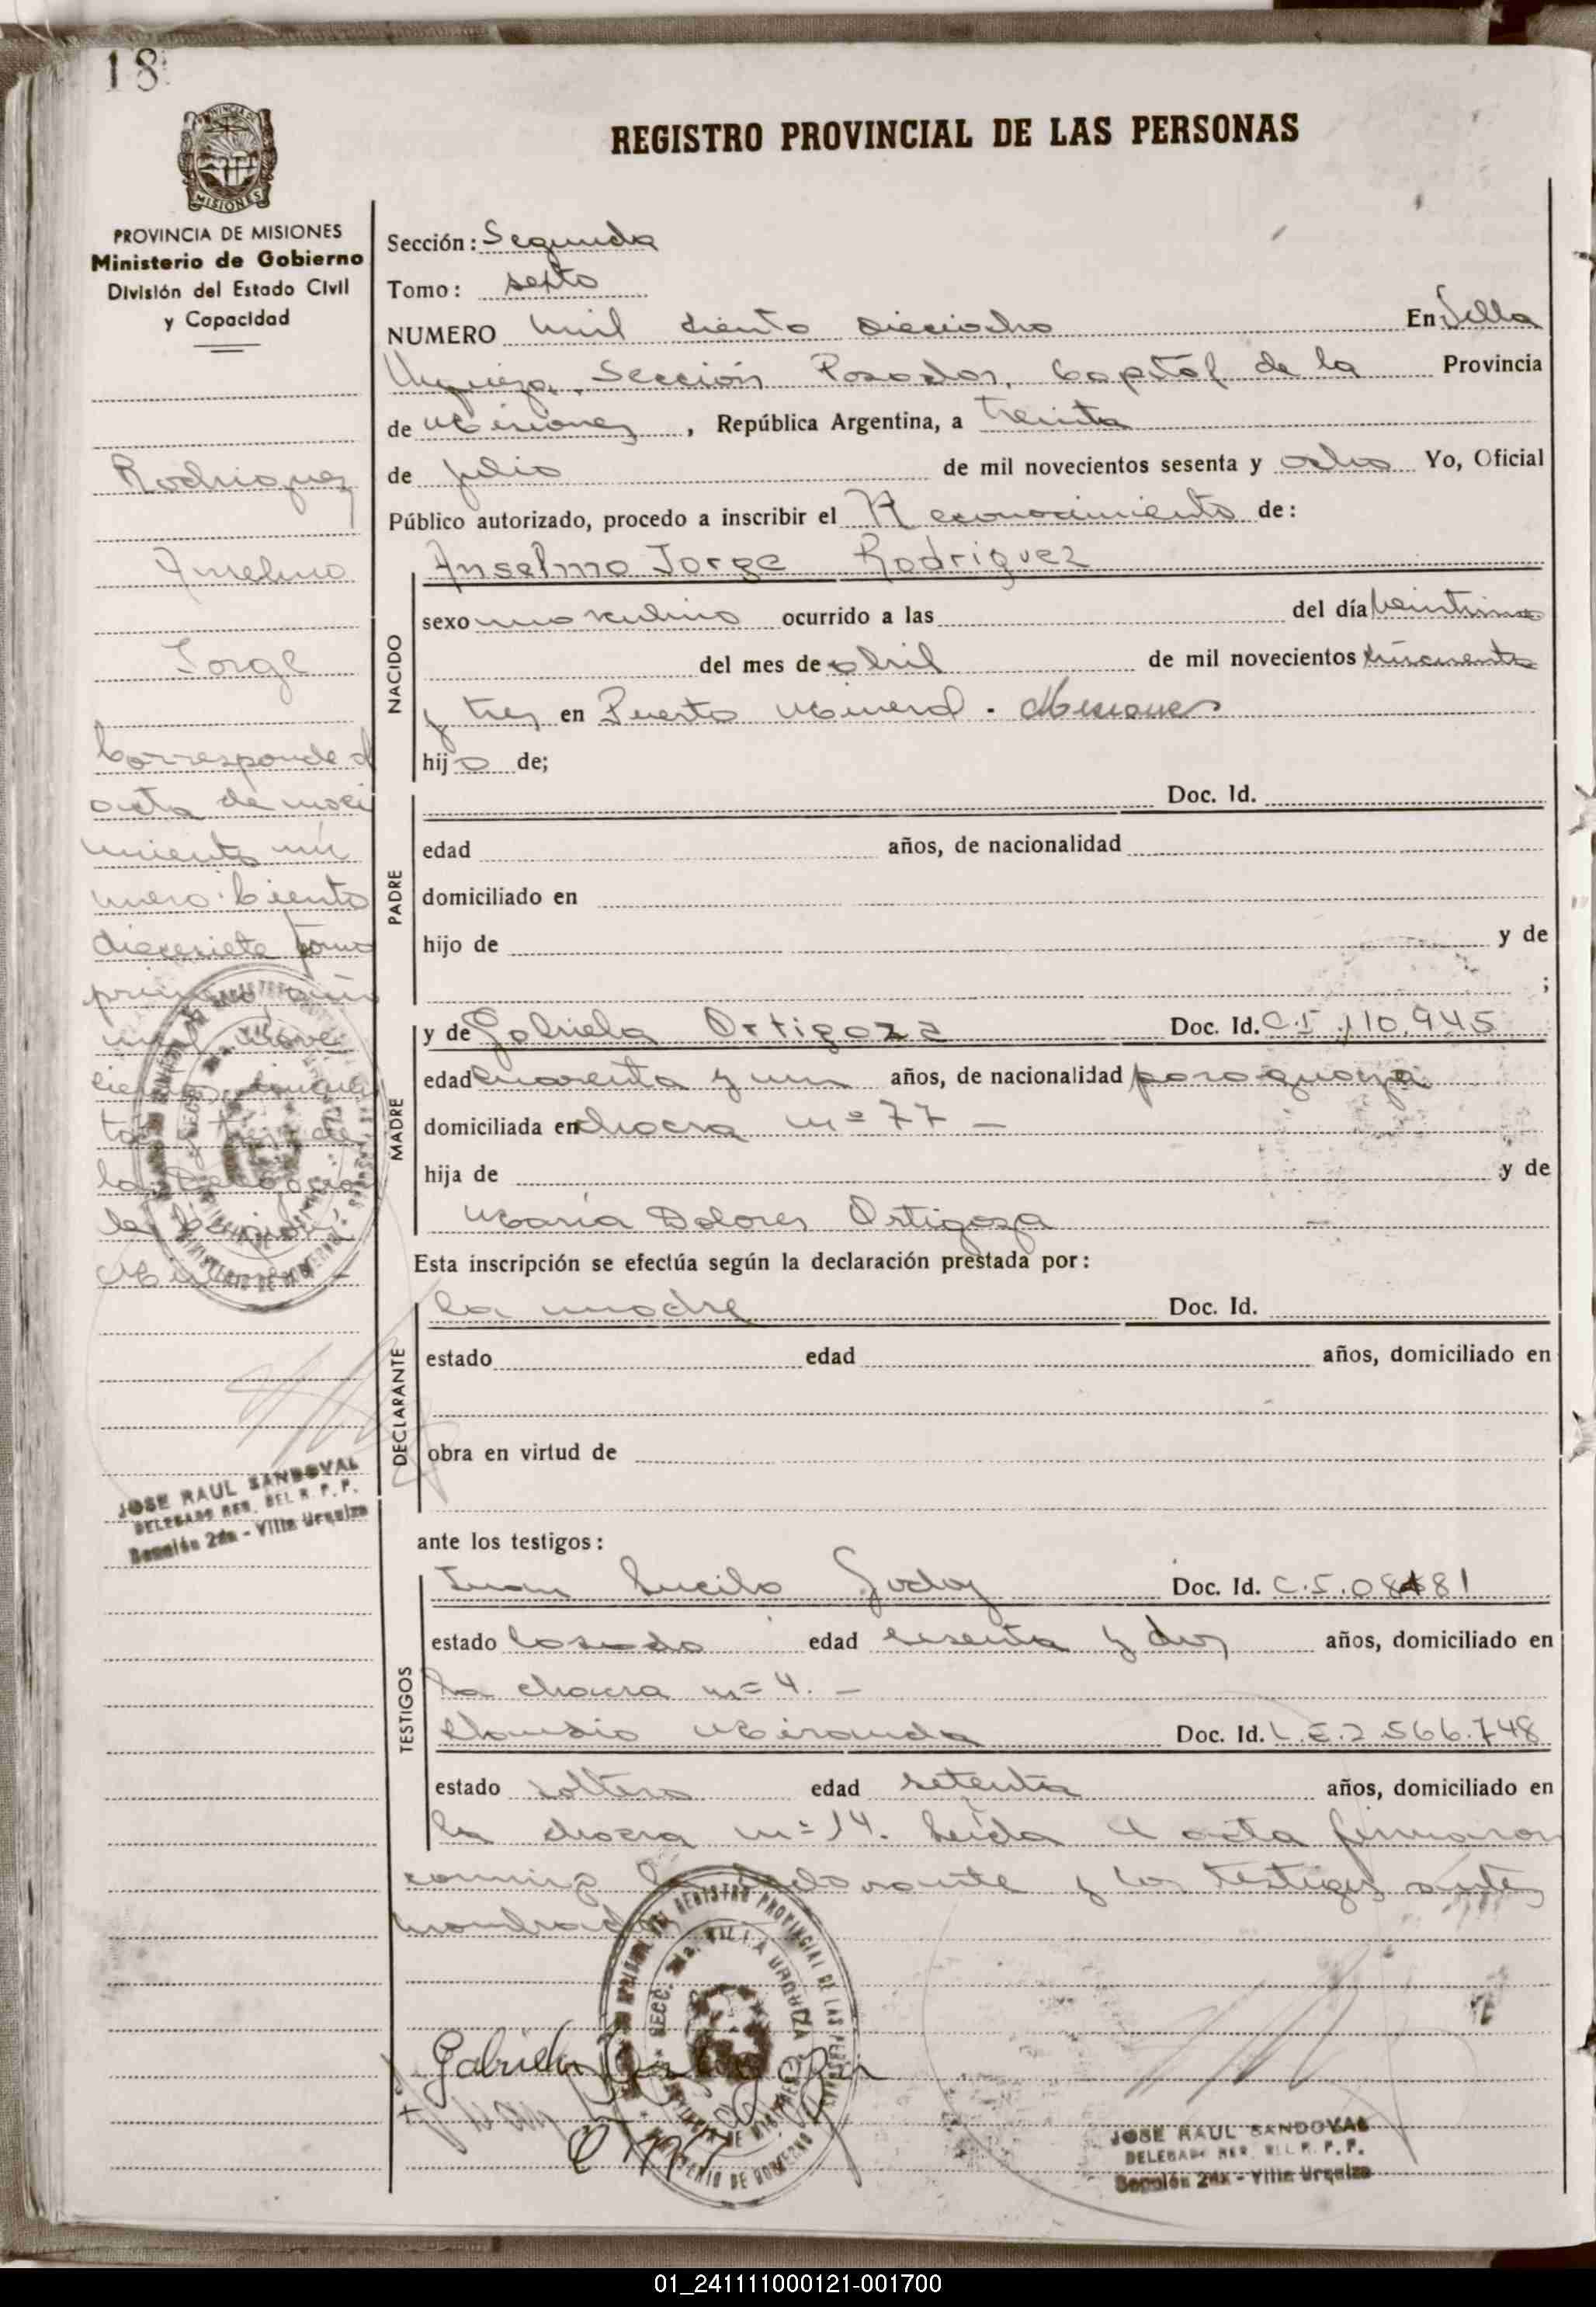 18
REGISTRO PROVINCIAL DE LAS PERSONAS
PROVINCIA DE MISIONES
Ministerio de Gobierno
División del Estado Civil
y Capacidad
Rodriguez
Anselmo
Jorge
Corresponde al
acta de naci
miento nú
mero Ciento
diecisiete tomo
JOSE RAUL SANDOVAL
DELEGADO REG. DEL R. P. P.
Sección 2da - Villa Urquiza
Sección: Segunda
Tomo: sexto
NUMERO mil ciento dieciocho En Villa
Urquiza, Sección Posadas, Capital de la Provincia
de Misiones, República Argentina, a treinta
de julio de mil novecientos sesenta y ocho Yo, Oficial
Público autorizado, procedo a inscribir el Reconocimiento de:
NACIDO
Anselmo Jorge Rodriguez
sexo masculino ocurrido a las del día veintiuno
del mes de abril de mil novecientos cincuenta
y tres en Puerto Mineral - Misiones
hijo de;
PADRE
Doc. Id.
edad años, de nacionalidad
domiciliado en
hijo de y de
;
MADRE
y de Gabriela Ortigoza Doc. Id. C.I. 110.945
edad cuarenta y un años, de nacionalidad paraguaya
domiciliada en chacra nº 77 -
hija de y de
María Dolores Ortigoza
Esta inscripción se efectúa según la declaración prestada por:
DECLARANTE
la madre Doc. Id.
estado edad años, domiciliado en
obra en virtud de
ante los testigos:
TESTIGOS
Juan Lucilo Godoy Doc. Id. C.I.
estado casado edad sesenta y dos años, domiciliado en
la chacra nº 4. -
Claudio Miranda Doc. Id. L.E. 2.566.748
estado soltero edad setenta años, domiciliado en
la chacra nº 14. Leída el acta firmaron
conmigo la declarante y los testigos antes
nombrados
Gabriela Ortigoza
JOSE RAUL SANDOVAL
DELEGADO REG. DEL R. P. P.
Sección 2da - Villa Urquiza
01_241111000121-001700